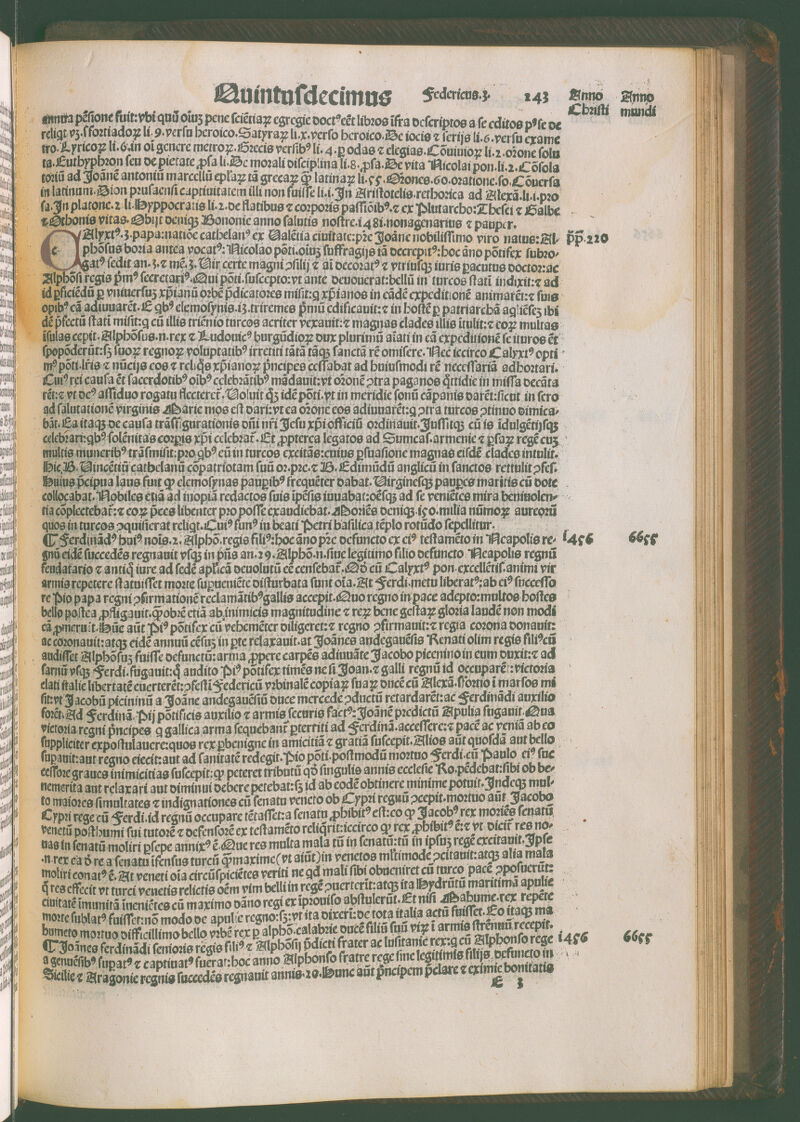 Quintusdecimus Federicus.3. 243 Anno Christi Anno mundi
annua pēsione fuit: vbi quū oīuʒ pene sciētiaꝝ egregie doctꝰ eēt libros īfra descriptos a se editos pꝰ se de
reliqt vʒ. sfortiadoꝝ li.9. versu heroico. Satyraꝝ li.x. verso heroico. De iocis ⁊ serijs li.6. versu exame
tro. Lyricoꝝ li.6. in oī genere metroꝝ. Grecis versibꝰ li.4. ꝑ odas ⁊ elegias. Cōuiuioꝝ li.2. orōne solu
ta. Euthyphron seu de pietate ꝓsa li. De morali disciplina li.8. ꝓsa. De vita Nicolai pon. li.2. Cōsola
toriū ad Joānē antoniū marcellū
in latinum. Dion prusaensi captiuitatem illi non fuisse li.i. In Aristotelis. rethorica ad Alexā. li.i. pro
sa. In platone. 2 li. Hyppocratis li.2. de flatibus ⁊ corporis passiōibꝰ. ⁊ ex Plutarcho: Thesei ⁊ Galbe
⁊ Othonis vitas. Obijt deniqʒ Bononie anno salutis nostre. i481. nonagenarius ⁊ pauper.
CAlyxtꝰ.3. papa: natiōe cathelanꝰ ex Valētia ciuitate: pr̄e Joāne nobilissimo viro natus: Al- pp̄.220
phōsus boria antea vocatꝰ: Nicolao pōti. oiuʒ suffragijs iā decrepitꝰ: hoc āno pōtifex subro-
gatꝰ sedit an.3. ⁊ mē.3. Vir certe magni ꝯsilij ⁊ aī decoratꝰ ⁊ vtriusqʒ iuris ꝑacutus doctor: ac
Alphōsi regis pʳmꝰ secretariꝰ. Qui pōti. suscepto: vt ante deuouerat: bellū in turcos statī indixit: ⁊ ad
id ꝑficiēdū ꝑ vniuersuʒ xp̄ianū orbē p̄dicatores misit: q xp̄ianos in eādē expeditionē animarēt: ⁊ suis
opibꝰ eā adiuuarēt. E qbꝰ elemosynis. i3. triremes pʳmū edificauit: ⁊ in hostē ꝑ patriarchā aqliēseʒ ibi
dē p̄fectū statī misit: q cū illis triēnio turcos acriter vexauit: ⁊ magnas clades illis ītulit: ⁊ eoꝝ multas
īsulas cepit. Alphōsus. n. rex ⁊ Ludouicꝰ burgūdioꝝ dux plurimū aīati in eā expeditionē se ituros eē
spopōderūt: sʒ suoꝝ regnoꝝ voluptatibꝰ irretiti tātā tāqʒ sanctā rē omisere. Nec iccirco Calyxtꝰ opti
mꝰ pōti. lr̄is ⁊ nūcijs eos ⁊ reliqs xp̄ianoꝝ pʳncipes cessabat ad huiusmodi rē necessariā adhortari.
Cuiꝰ rei causa et sacerdotibꝰ oībꝰ celebrātibꝰ mādauit: vt orōnē ꝯtra paganos qttidie in missa decāta
rēt: ⁊ vt deꝰ assiduo rogatu flecteret̄. Voluit qʒ idē pōti. vt in meridie sonū cāpanis darēt: sicut in sero
ad salutationē virginis Marie mos est dari: vt ea orōne eos adiuuarēt: q ꝯtra turcos ꝯtinuo dimica-
bāt. Ea itaqʒ de causa trāssigurationis dn̄i nr̄i Jesu xp̄i officiū ordinauit. Jussitqʒ cū is īdulgētijsqʒ
celebrari: qbꝰ solēnitas corꝑis xp̄i celebrat̄. Et ꝓpterea legatos ad Sumcas. armenie ⁊ ꝑsaꝝ regē cuʒ
multis muneribꝰ trāsmisit: pro qbꝰ eū in turcos excitās: euius ꝑsuasione magnas eisdē clades intulit.
Hic. B. Vincētiū cathelanū cōpatriotam suū or. pre. ⁊ B. Edimūdū anglicū in sanctos rettulit ꝯfes.
Huius pʳcipua laus fuit qꝫ elemosynas pauꝑibꝰ frequēter dabat. Virginesqʒ pauꝑes maritis cū dote
collocabat. Nobiles etiā ad inopiā redactos suis īpēsis iuuabat: oēsqʒ ad se veniētes mira beniuolen-
tia cōplectebat̄: ⁊ eoꝝ p̄ces libenter pro posse exaudiebat. Moriēs deniqʒ. i50. milia nūmoꝝ aureorū
quos in turcos ꝯquisierat reliqt. Cuiꝰ funꝰ in beati Petri basilica tēplo rotūdo sepellitur.
¶ Ferdinādꝰ huiꝰ nois. 2. Alphō. regis filiꝰ: hoc āno pr̄e defuncto ex eiꝰ testamēto in Neapolis re- i456 6655
gnū eidē succedēs regnauit vsqʒ in pn̄s an. 29. Alphō. n. siue legitimo filio defuncto Neapolis regnū
feudatario ⁊ antiq iure ad sedē aplicā deuolutū cē censebat̄. Qd cū Calyxtꝰ pon. excellētis. animi vir
armis repetere statuisset morte supueniēte disturbata sunt oīa. At Ferdi. metu liberatꝰ: ab eiꝰ successo
re Pio papa regni ꝯfirmationē reclamātibꝰ gallis accepit. Quo regno in pace adepto: multos hostes
bello postea ꝓfligauit. Quobrē etiā ab inimicis magnitudine ⁊ reꝝ bene gestaꝝ gloria laudē non modi
cā ꝓmeruit. Hūc aūt Piꝰ pōtifex cū vehemēter diligeret: ⁊ regno ꝯfirmauit: ⁊ regia corona donauit:
ac coronauit: atqʒ eidē annuū cēsuʒ in ꝑte relaxauit. at Joānes andegauēsis Renati olim regis filiꝰ cū
audisset Alphōsuʒ fuisse defunctū: arma ꝓpere carpēs adiuuāte Jacobo picenino in eum duxit: ⁊ ad
sarnū vsqʒ Ferdi. fugauit: q audito Piꝰ pōtifex timēs ne si Joan. ⁊ galli regnū id occuparēt: victoria
elati italie libertatē euerterēt: ꝯfesti Federicū vrbinalē copiaꝝ suaꝝ ducē cū Alexā. sfortio ī marsos mi
sit: vt Jacobū piciniuū a Joāne andegauēsiū duce mercede ꝯductū retardarēt: ac Ferdinādi auxilio
forēt. Ad Ferdinā. Pij pōtificis auxilio ⁊ armis securis factꝰ: Joānē predictū Apulia fugauit. Qua
victoria regni pʳncipes q gallica arma sequebant̄ ꝑterriti ad Ferdinā. accessere: ⁊ pacē ac veniā ab eo
suppliciter expostulauere: quos rex ꝑbenigne in amicitiā ⁊ gratiā suscepit. Alios aūt quosdā aut bello
supauit: aut regno eiecit: aut ad sanitatē redegit. Pio pōti. postmodū mortuo Ferdi. cū Paulo eiꝰ suc
cessore graues inimicitias suscepit: qꝫ peteret tributū qd singulis annis ecclesie Ro. pēdebat: sibi ob be-
nemerita aut relaxari aut diminui debere petebat: sʒ id ab codē obtinere minime potuit. Indeqʒ mul-
to maiores simultates ⁊ indignationes cū senatu veneto ob Cypri regnū ꝯcepit. mortuo aūt Jacobo
Cypri rege cū Ferdi. id regnū occupare tētasset: a senatu ꝓhibitꝰ est: eo qꝫ Jacobꝰ rex moriēs senatū
venetū posthumi sui tutorē ⁊ defensorē ex testamēto reliqrit: iccirco qꝫ rex ꝓhibitꝰ ē: ⁊ vt dicit̄ res no-
uas in senatū moliri ꝑsepe annixꝰ ē. Que res multa mala tū in senatū: tū in ipsuʒ regē excitauit. Ipse
.n. rex ea d re a senatu īfensus turcū qꝫmaxime (vt aiūt) in venetos mltīmode ꝯcitauit: atqʒ alia mala
moliri conatꝰ ē. At veneti oia circūspiciētes veriti ne qd mali sibi obueniret cū turco pacē ꝯposuerūt:
q res effecit vt turci venetis relictis oēm vim belli in regē ꝯuerterūt: atqʒ ita Hydrūtū maritimā apulie
ciuitatē imunitā īueniētes cū maximo dāno regi ex īprouiso abstulerūt. Et nisi Mahume. rex repēte
morte sublatꝰ fuisset: nō modo de apulie regno: sʒ: vt ita dixeri: de tota italia actū fuisset. Eo itaqʒ ma
humeto mortuo difficillimo bello vrbē rex ꝑ alphō. calabrie ducē filiū suū vix ī armis strēnui recepit.
¶ Joānes ferdinādi senioris regis filiꝰ ⁊ Alphōsij p̄dicti frater ac lusitanie rex: q cū Alphonso rege i456 6655
a genuēsibꝰ supatꝰ ⁊ captiuatꝰ fuerat: hoc anno Alphonso fratre rege sine legitimis filijs defuncto in
Sicilie ⁊ Aragonie regnis succedēs regnauit annis. 20. Hunc aūt pʳncipem p̄clare ⁊ eximie bonitatis
E 3